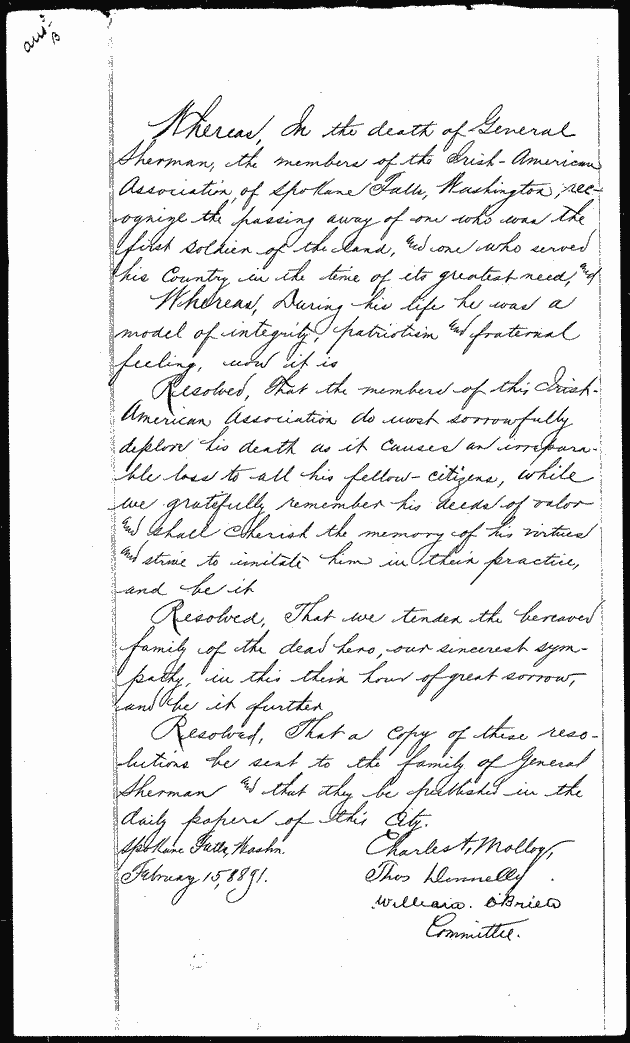 ans.
B
Whereas, In the death of General
Sherman, the members of the Irish-American
Association, of Spokane Falls, Washington, rec-
ognize the passing away of one who was the
first soldier of the land, and one who served
his Country in the time of its greatest need, and
Whereas, During his life he was a
model of integrity, patriotism and fraternal
feeling, now it is
Resolved, That the members of this Irish-
American Association do most sorrowfully
deplore his death as it causes an irrepara-
ble loss to all his fellow-citizens, while
we gratefully remember his deeds of valor
and shall cherish the memory of his virtues
and strive to imitate him in their practice,
and be it
Resolved, That we tender the bereaved
family of the dead hero, our sincerest sym-
pathy, in this their hour of great sorrow,
and be it further
Resolved, That a copy of these reso-
lutions be sent to the family of General
Sherman and that they be published in the
daily papers of this City.
Spokane Falls, Washn.
February 15, 1891.
Charles A. Molloy,
Thos Donnelly.
William O'Brien
Committee.